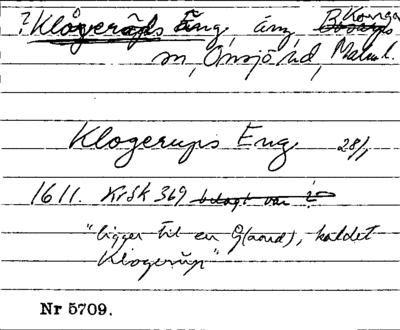 ? Klågeråds äng, äng, Konga
sn, Onsjö hd, Malmh.
Klogerups Eng 28/1
1611. KrSk 369 belagt var?
"ligger til en G(aard), kaldet
Klogerŭp"
Nr 5709.